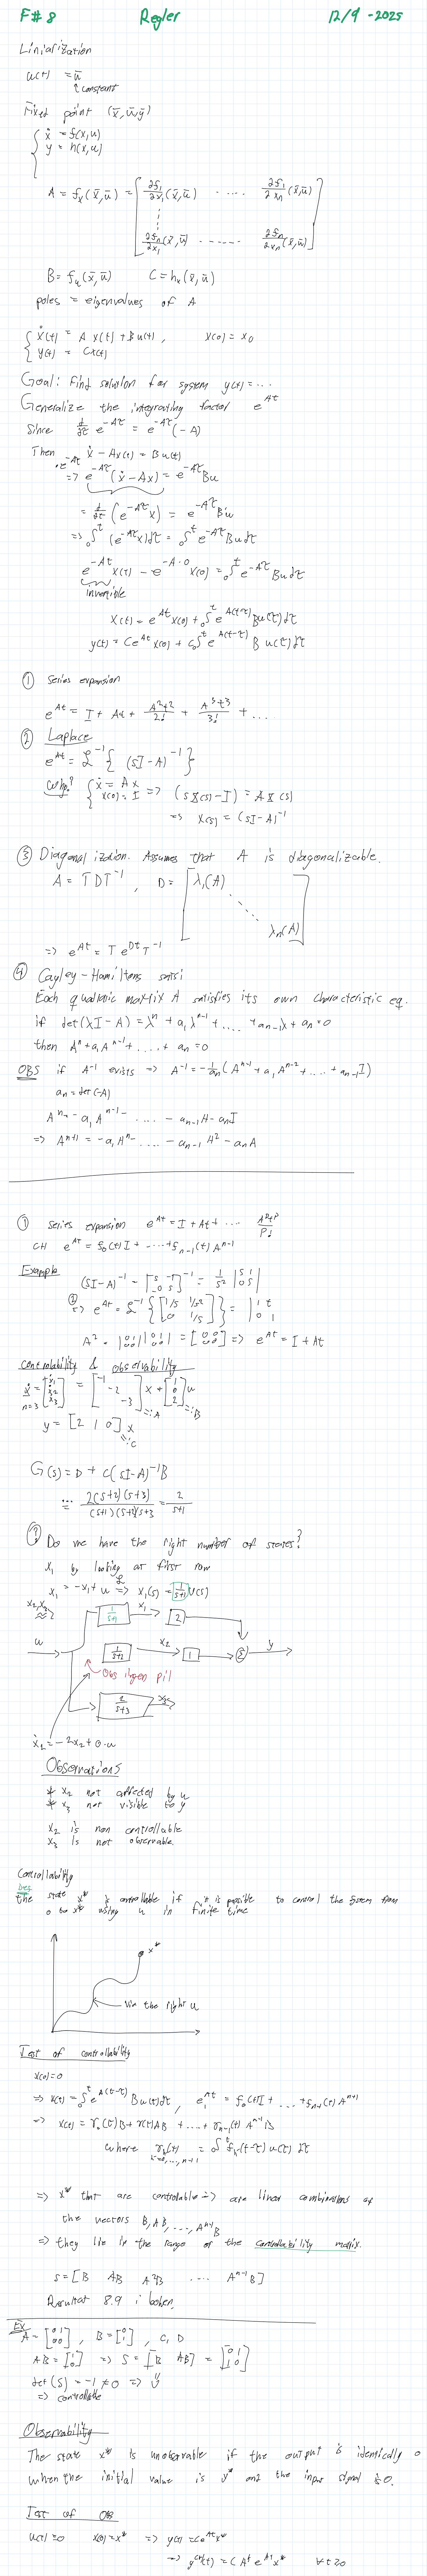 F# 8 Regler 12/9 -2025
Liniarization
u(t) = ū
↑ constant
Fixed point (x̄, ū, ȳ)
{ ẋ = f(x,u)
y = h(x,u)
A = fₓ(x̄,ū) = [ ∂f₁/∂x₁ (x̄,ū) ..... ∂f₁/∂xₙ (x̄,ū)
∂fₙ/∂x₁ (x̄,ū) ...... ∂fₙ/∂xₙ (x̄,ū) ]
B = fᵤ(x̄,ū) C = hₓ(x̄,ū)
poles = eigenvalues of A
{ ẋ(t) = A x(t) + B u(t), x(0) = x₀
y(t) = Cx(t)
Goal: Find solution for system y(t) = ...
Generalize the integrating factor e^At
Since d/dτ e^-Aτ = e^-Aτ(-A)
Then ẋ - Ax(t) = Bu(t)
=> e^-Aτ(ẋ - Ax) = e^-Aτ Bu
= d/dτ (e^-Aτ x) = e^-Aτ Bu
=> ₀∫ᵗ (e^-Aτ x)dτ = ₀∫ᵗ e^-Aτ Bu dτ
e^-At x(t) - e^-A·0 x(0) = ₀∫ᵗ e^-Aτ Bu dτ
invertible
x(t) = e^At x(0) + ₀∫ᵗ e^A(t-τ) Bu(τ)dτ
y(t) = Ce^At x(0) + C₀∫ᵗ e^A(t-τ) B u(τ)dτ
① Series expansion
e^At = I + At + A²t²/2! + A³t³/3! + ...
② Laplace
e^At = ℒ⁻¹{ (sI-A)⁻¹ }
Why? { ẋ = Ax
x(0) = I => (sX(s) - I) = A X(s)
=> X(s) = (sI-A)⁻¹
③ Diagonalization. Assumes that A is diagonalizable.
A = TDT⁻¹, D = [ λ₁(A)
λₙ(A) ]
=> e^At = T e^Dt T⁻¹
④ Cayley-Hamiltons satsi
Each quadratic matrix A satisfies its own characteristic eq.
if det(λI-A) = λⁿ + a₁λⁿ⁻¹ + .... + aₙ₋₁λ + aₙ = 0
then Aⁿ + a₁Aⁿ⁻¹ + .... + aₙ = 0
OBS if A⁻¹ exists => A⁻¹ = -1/aₙ (Aⁿ⁻¹ + a₁Aⁿ⁻² + ... + aₙ₋₁I)
aₙ = det(-A)
Aⁿ = -a₁Aⁿ⁻¹ - .... - aₙ₋₁A - aₙI
=> Aⁿ⁺¹ = -a₁Aⁿ - .... - aₙ₋₁A² - aₙA
① Series expansion e^At = I + At + ... Aᵖtᵖ/p!
CH e^At = f₀(t)I + ... + fₙ₋₁(t)Aⁿ⁻¹
Example (sI-A)⁻¹ = [s -1 0 s]⁻¹ = 1/s² |s 1 0 s|
② => e^At = ℒ⁻¹{ [1/s 1/s² 0 1/s] } = |1 t 0 1|
A² = |0 1 0 0| |0 1 0 0| = [0 0 0 0] => e^At = I + At
Controlability & observability
ẋ = [ẋ₁ ẋ₂ ẋ₃] = [-1 -2 -3] x + [1 0 2] u
n=3 =:A =:B
y = [2 1 0] x
=:C
G(s) = D + C(sI-A)⁻¹B
= ... 2(s+2)(s+3)/(s+1)(s+2)(s+3) = 2/s+1
? Do we have the right number of states?
x₁ by looking at first row
ẋ₁ = -x₁ + u ℒ=> x₁(s) = 1/s+1 U(s)
1/s+1 x₁ 2
u 1/s+2 x₂ 1 Σ y
Obs ingen pil
2/s+3 x₃
ẋ₂ = -2x₂ + 0·u
Observations
* x₂ not affected by u
* x₃ not visible to y
x₂ is non controllable
x₃ is not observable.
Controllability
The state x* is controllable if it is possible to control the system from
0 to x* using u in finite time
x*
via the right u
Test of controllability
x(0) = 0
=> x(t) = ₀∫ᵗ e^A(t-τ) Bu(τ)dτ, e^At = f₀(t)I + ... + fₙ₋₁(t)Aⁿ⁻¹
=> x(t) = γ₀(t)B + γ₁(t)AB + ... + γₙ₋₁(t)Aⁿ⁻¹B
where γₖ(t) = ₀∫ᵗ fₖ(t-τ) u(τ) dτ
k=0,...,n-1
=> x* that are controllable => are linear combinations of
the vectors B, AB, ..., Aⁿ⁻¹B
=> they lie in the range of the controllability matrix.
S = [B AB A²B ... Aⁿ⁻¹B]
Resultat 8.9 i boken.
Ex A = [0 1 0 0], B = [0 1], C, D
AB = [1 0] => S = [B AB] = [0 1 1 0]
det(S) = -1 ≠ 0 =>
=> controllable
Observability
The state x* is unobservable if the output is identically 0
when the initial value is x* and the input signal is 0.
Test of OB
u(t) = 0 x(0) = x* => y(t) = Ce^At x*
=> y^(k)(t) = CAᵏ e^At x* ∀t≥0